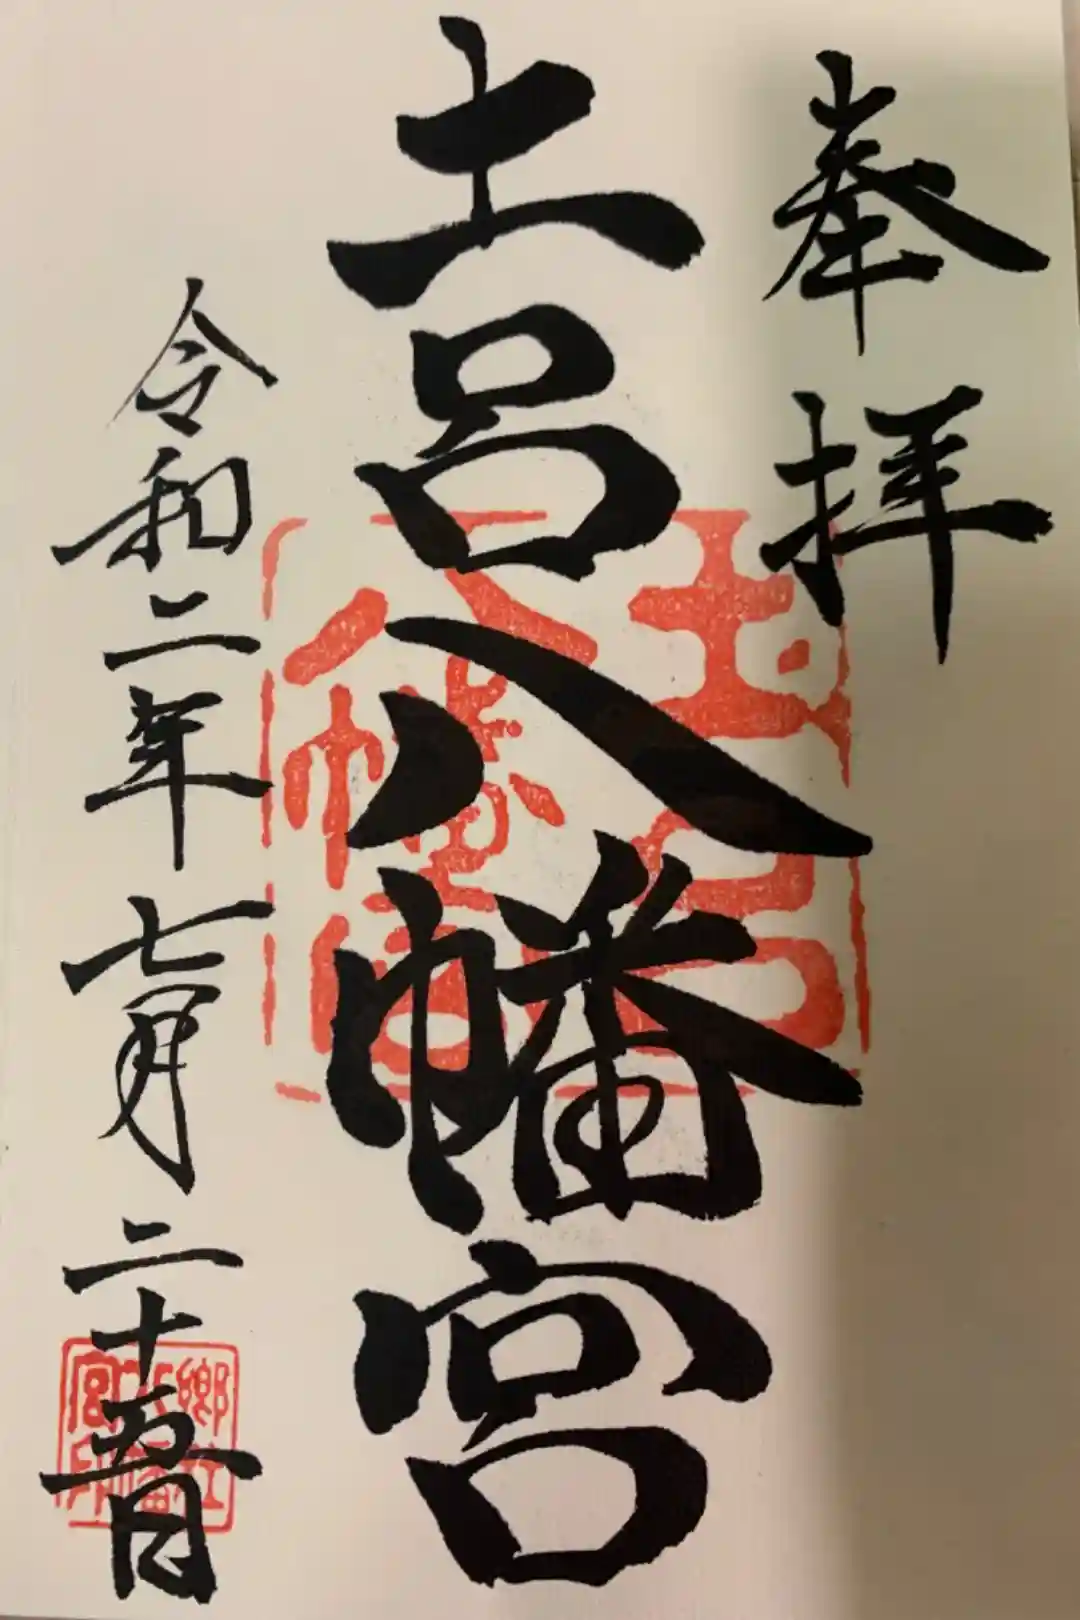 奉拝
土呂八幡宮
令和二年七月二十五日
土呂八幡宮
郷社八幡宮印